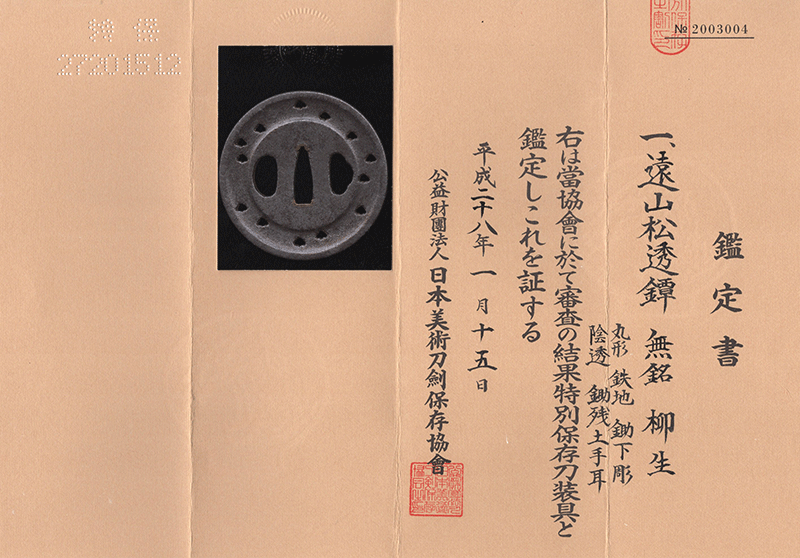 鑑定書
一、遠山松透鐔 無銘 柳生
丸形 鉄地 鋤下彫
陰透 鋤残土手耳
右は當協會に於て審査の結果特別保存刀装具と
鑑定しこれを証する
平成二十八年一月十五日
公益財團法人 日本美術刀劍保存協會
№ 2003004
特保
27201512